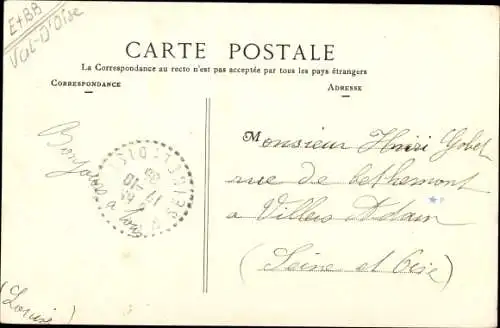 E+BB
VAL-D'Oise
CARTE POSTALE
La Correspondance au recto n'est pas acceptée par tous les pays étrangers
CORRESPONDANCE
ADRESSE
Bonjours à tous
Monsieur Henri Gobet
rue de bethemont
a Villiers Adam
(Seine et Oise)
(Louise)